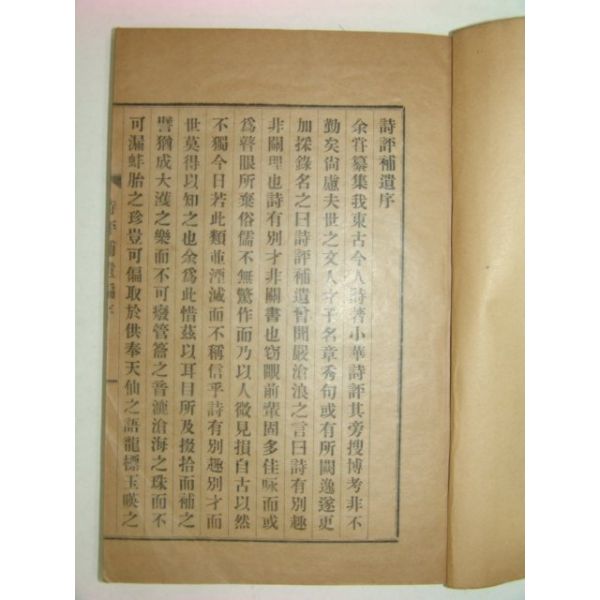 詩評補遺序
余嘗纂集我東古今人詩著小華詩評其旁搜博考非不
勤矣尙慮夫世之文人才子名章秀句或有所闕逸遂更
加採錄名之曰詩評補遺曾聞嚴滄浪之言曰詩有別趣
非關理也詩有別才非關書也窃覸前輩固多佳咏而或
爲瞽眼所棄俗儒不無驚作而乃以人微見損自古以然
不獨今日若此類並湮滅而不稱信乎詩有別趣別才而
世莫得以知之也余爲此惜玆以耳目所及掇拾而補之
譬猶成大濩之樂而不可癈管籥之音漉滄海之珠而不
可漏蚌胎之珍豈可偏取於供奉天仙之語龍標玉暎之